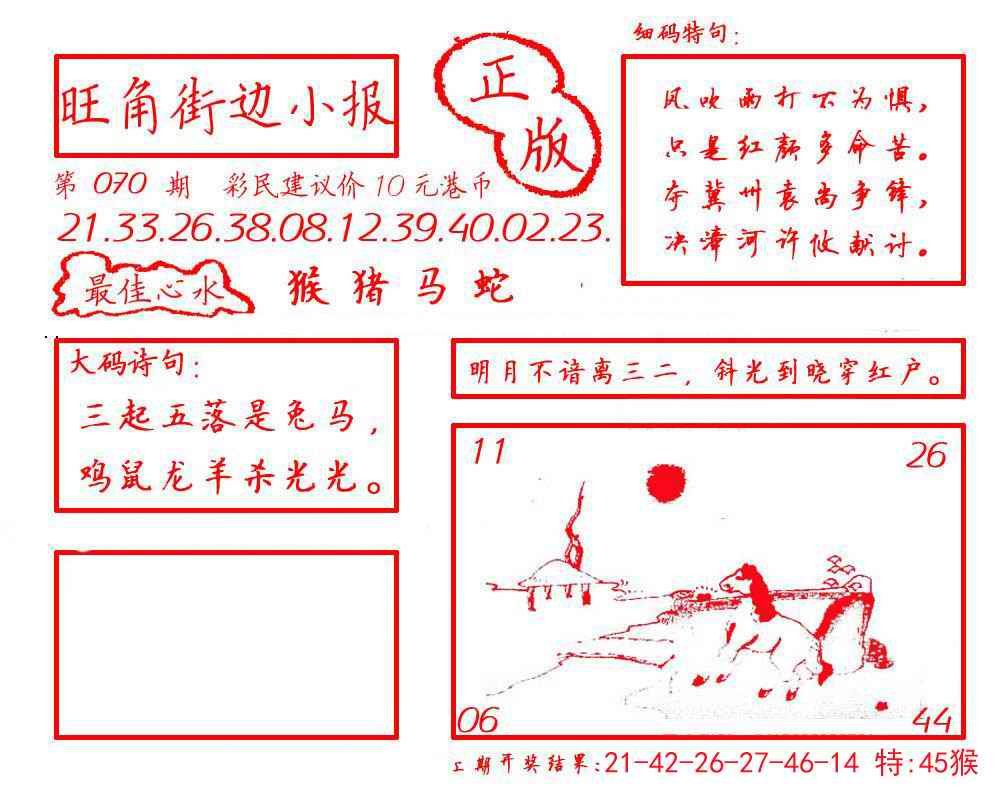 旺角街边小报
正版
第 070 期 彩民建议价 10 元港币
21.33.26.38.08.12.39.40.02.23.
最佳心水 猴 猪 马 蛇
细码特句：
风吹雨打不为惧，
只是红颜多命苦。
夺冀州袁尚争锋，
决漳河许攸献计。
大码诗句：
三起五落是兔马，
鸡鼠龙羊杀光光。
明月不谙离三二，斜光到晓穿红户。
11
26
06
44
上期开奖结果：21-42-26-27-46-14 特：45猴